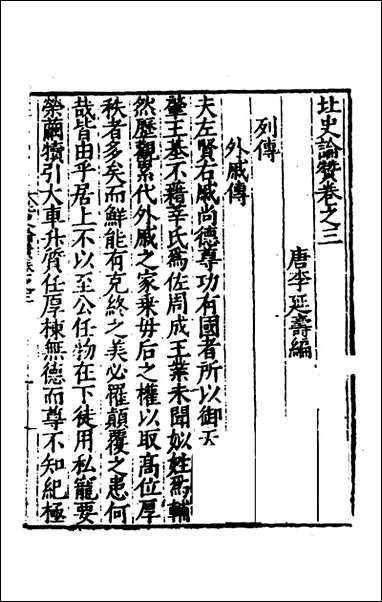 北史論贊卷之三
唐李延壽編
列傳
外戚傳
夫左賢右戚尚德尊功有國者所以御天
肇王基不藉莘氏爲佐周成王業未聞姒姓爲輔
然歷觀累代外戚之家乗毋后之權以取高位厚
秩者多矣而鮮能有克終之美必罹顛覆之患何
哉皆由乎居上不以至公任物在下徒用私寵要
榮繭犢引大車弁質任厚棟無德而尊不知紀極